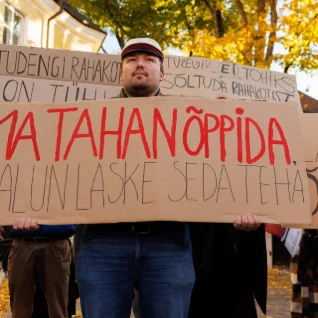 TUDENGI RAHAKO
ON TÜH
TULEVIK EI TOHIKS
SÕLTUDA RAHAKOTIST
MA TAHAN ÕPPIDA,
PALUN LASKE SEDA TEHA